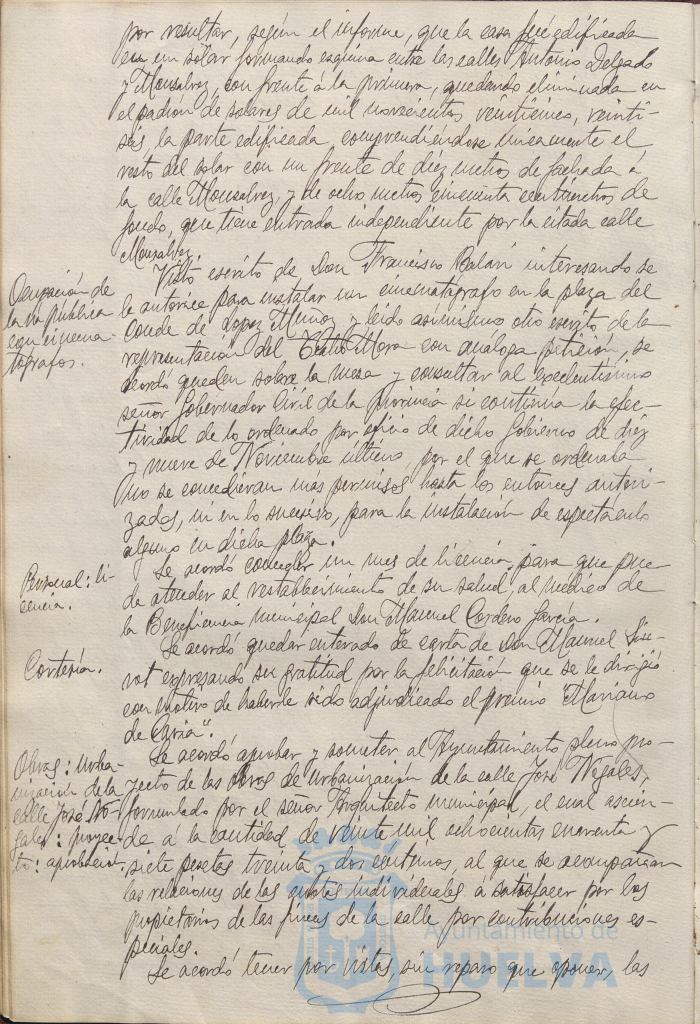 por resultar, según el informe, que la casa fué edificada
en un solar formando esquina entre las calles Antonio Delgado
y Monsalvez, con frente á la primera, quedando eliminada en
el padrón de solares de mil novecientos veinticinco, veinti-
seis, la parte edificada comprendiéndose unicamente el
resto del solar con un frente de diez metros de fachada á
la calle Monsalvez, y de ocho metros cincuenta centímetros de
fondo, que tiene entrada independiente por la citada calle
Monsalvez.
Ocupación de
la vía pública
con cinema-
tógrafos.
Visto escrito de Don Francisco interesando se
le autorice para instalar un cinematógrafo en la plaza del
Conde de Lopez Muñoz y leido asimismo otro escrito de la
representación del Teatro Mora con análoga petición, se
acordó queden sobre la mesa y consultar al excelentísimo
señor Gobernador Civil de la provincia si continua la efec-
tividad de lo ordenado por oficio de dicho Gobierno de diez
y nueve de Noviembre último por el que se ordenaba
no se concedieran mas permisos hasta los entonces autori-
zados, ni en lo sucesivo, para la instalación de espectáculo
alguno en dicha plaza.
Personal: li-
cencia.
Se acordó conceder un mes de licencia, para que pue-
da atender al restablecimiento de su salud, al médico de
la Beneficencia municipal Don Manuel Cordero García.
Cortesía.
Se acordó quedar enterado de carta de Don Manuel Siu-
rot expresando su gratitud por la felicitación que se le dirigió
con motivo de haberle sido adjudicado el premio "Mariano
de Cavia".
Obras: Urba-
nización de la
calle José No-
gales: proyec-
to: aprobación.
Se acordó aprobar y someter al Ayuntamiento pleno pro-
yecto de las obras de urbanización de la calle José Nogales,
formulado por el señor Arquitecto municipal, el cual ascien-
de á la cantidad de veinte mil ochocientas cuarenta y
siete pesetas treinta y dos céntimos, al que se acompañan
las relaciones de las cuotas individuales á satisfacer por los
propietarios de las fincas de la calle por contribuciones es-
peciales.
Se acordó tener por vistas, sin reparo que oponer, las
Ayuntamiento de
HUELVA